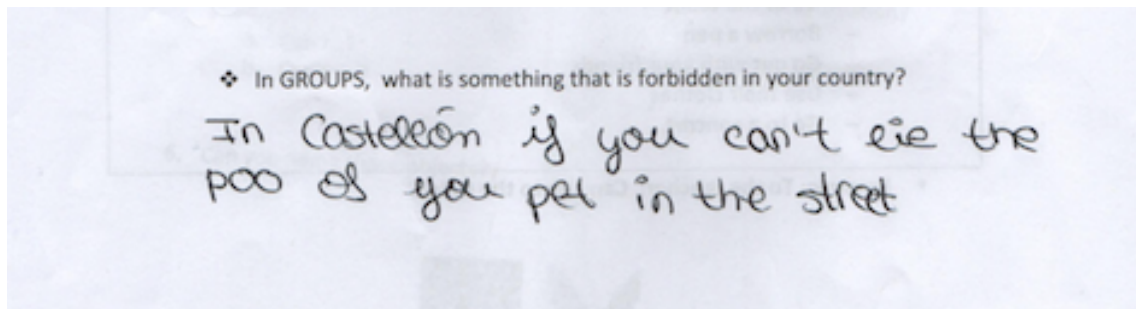 ❖ In GROUPS, what is something that is forbidden in your country?
In Castellón if you can't lie the
poo of you pet in the street